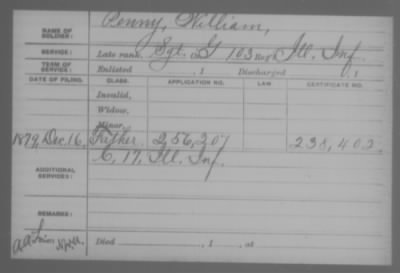 NAME OF SOLDIER: Penny, William,
SERVICE: Late rank, Sgt. Co. G 103 Reg't Ill. Inf.
TERM OF SERVICE: Enlisted , 1 Discharged , 1
DATE OF FILING. CLASS. APPLICATION NO. LAW CERTIFICATE NO.
Invalid,
Widow,
Minor,
1879, Dec. 16, Father, 256,207 238,402
ADDITIONAL SERVICES: C, 17, Ill. Inf.
REMARKS:
Died , 1 , at